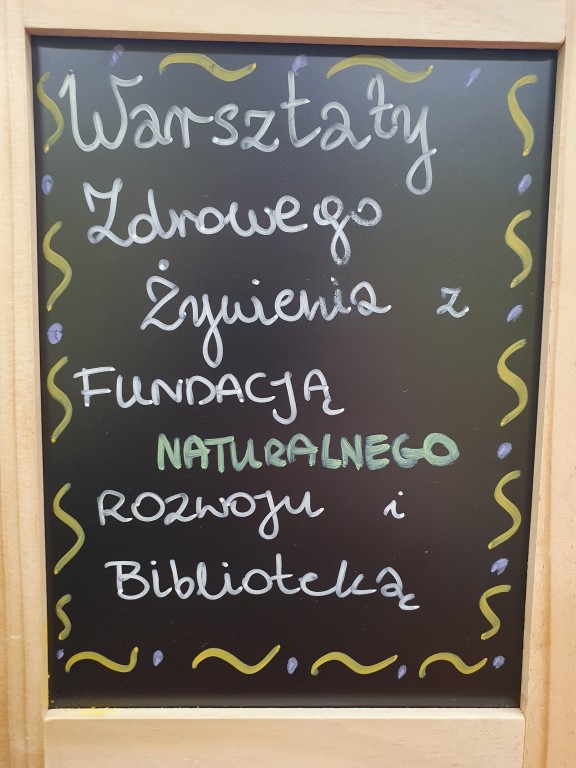 Warsztaty
Zdrowego
Żywienia z
FUNDACJĄ
NATURALNEGO
ROZWOJU i
Biblioteką